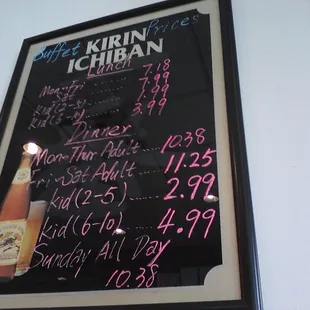 Buffet Prices
KIRIN
ICHIBAN
Lunch
Mon-Fri ........ 7.18
Sat ........ 7.99
Kid (2-5) ........ 1.99
Kid (6-10) ........ 3.99
Dinner
Mon-Thur Adult ..... 10.38
Fri-Sat Adult ..... 11.25
Kid (2-5) ........ 2.99
Kid (6-10) ........ 4.99
Sunday All Day
10.38